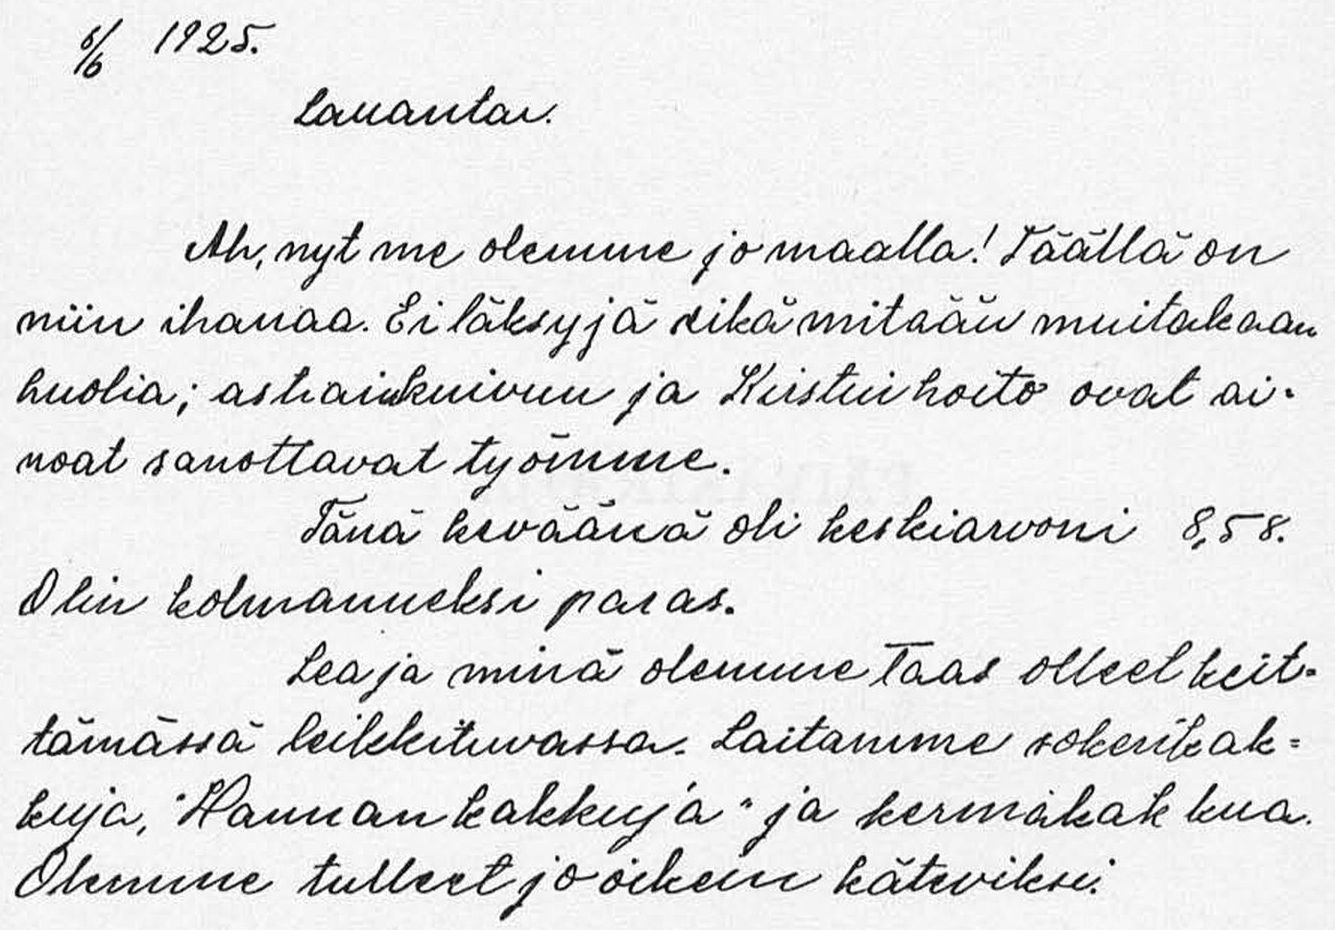 6/6 1925.
Lauantai.
Ah, nyt me olemme jo maalla! Täällä on
niin ihanaa. Ei läksyjä eikä mitään muitakaan
huolia; astiainkuivuu ja Kirstin hoito ovat ai-
noat sanottavat työmme.
Tänä keväänä oli keskiarvoni 8,58.
Olin kolmanneksi paras.
Lea ja minä olemme taas olleet keit-
tämässä leikkituvassa. Laitamme sokerikak=
kuja, "Hannan kakkuja" ja kermakakkua.
Olemme tulleet jo oikein käteviksi.